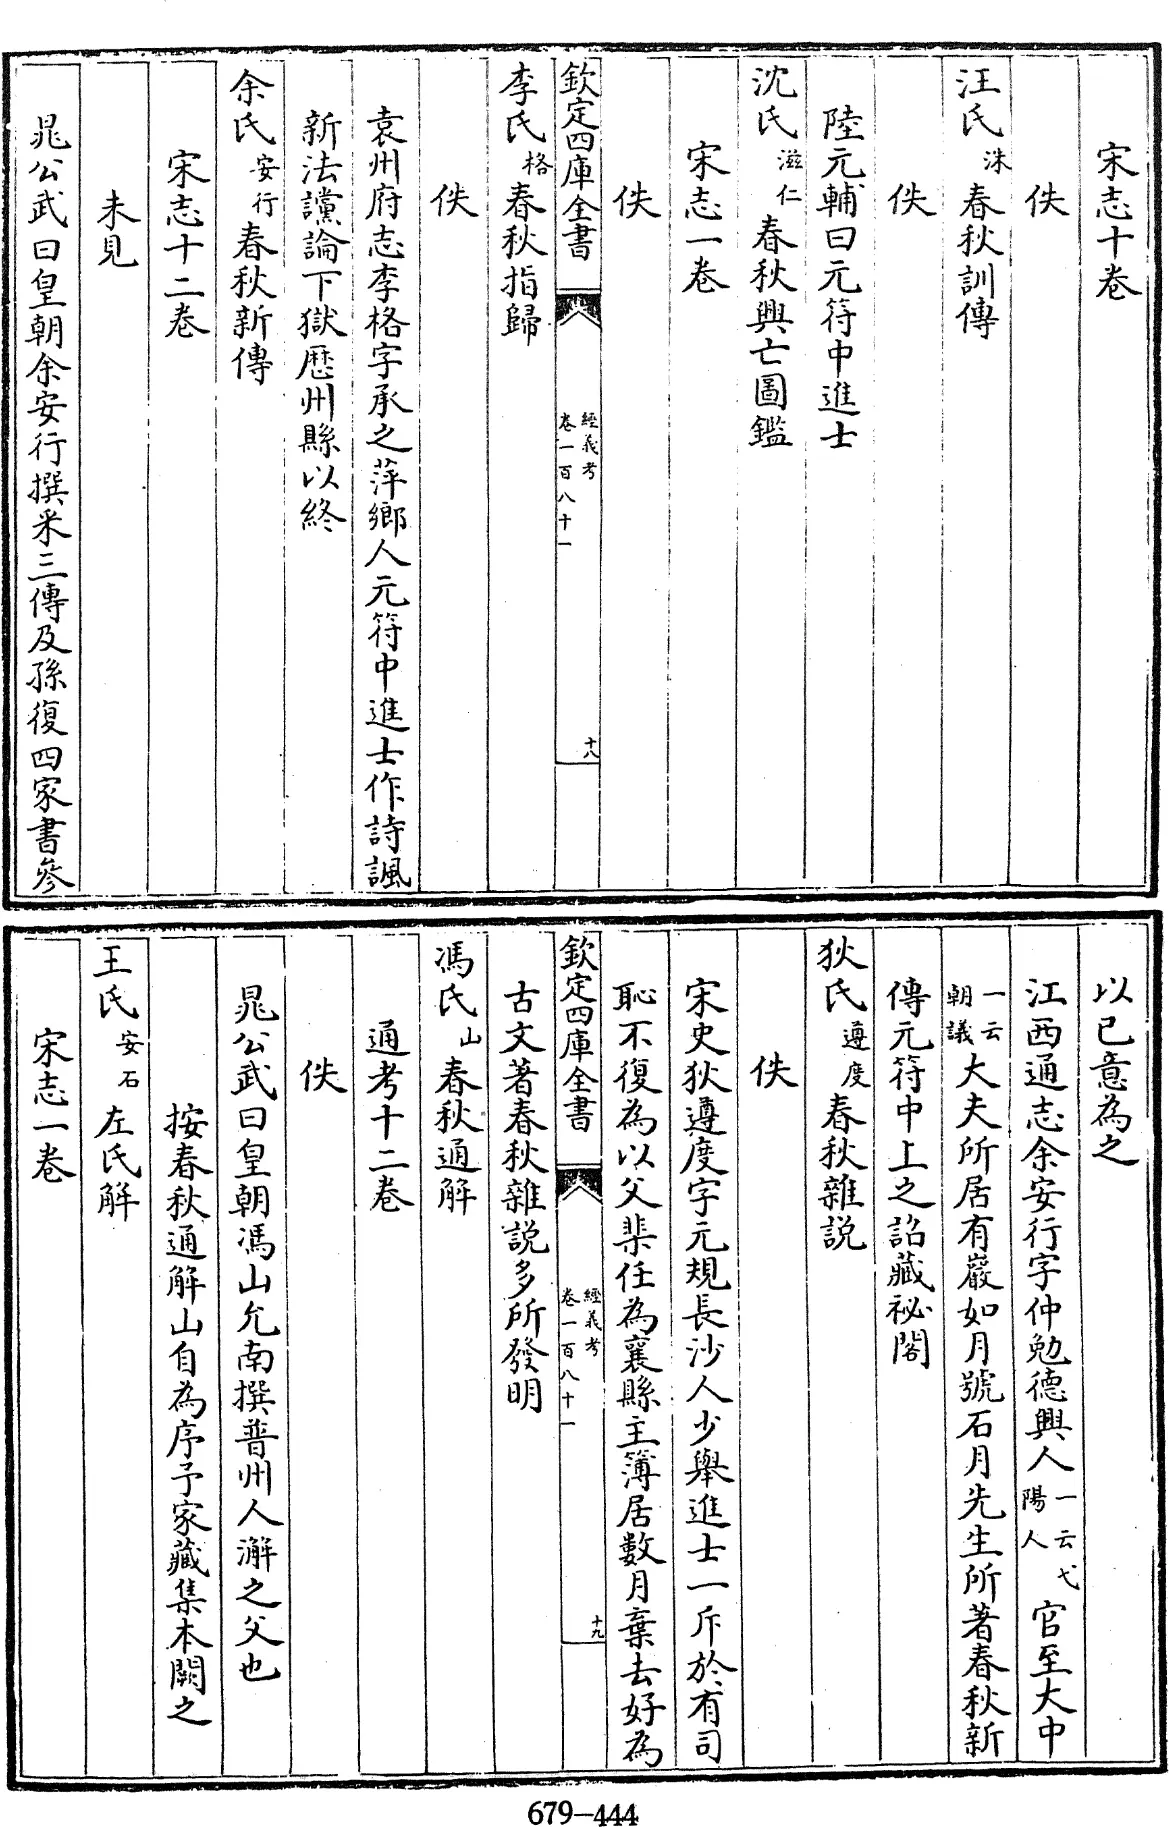 宋志十卷
佚
汪氏洙春秋訓傳
佚
陸元輔曰元符中進士
沈氏滋仁春秋興亡圖鑑
宋志一卷
佚
欽定四庫全書
經義考
卷一百八十一
十八
李氏格春秋指歸
佚
袁州府志李格字承之萍鄉人元符中進士作詩諷
新法讜論下獄歷州縣以終
余氏安行春秋新傳
宋志十二卷
未見
晁公武曰皇朝余安行撰采三傳及孫復四家書參
以已意為之
江西通志余安行字仲勉德興人一云弋陽人官至大中
一云朝議大夫所居有巖如月號石月先生所著春秋新
傳元符中上之詔藏祕閣
狄氏遵度春秋雜說
佚
宋史狄遵度字元規長沙人少舉進士一斥於有司
恥不復為以父棐任為襄縣主簿居數月棄去好為
欽定四庫全書
經義考
卷一百八十一
十九
古文著春秋雜說多所發明
馮氏山春秋通解
通考十二卷
佚
晁公武曰皇朝馮山允南撰普州人澥之父也
按春秋通解山自為序予家藏集本闕之
王氏安石左氏解
宋志一卷
679-444